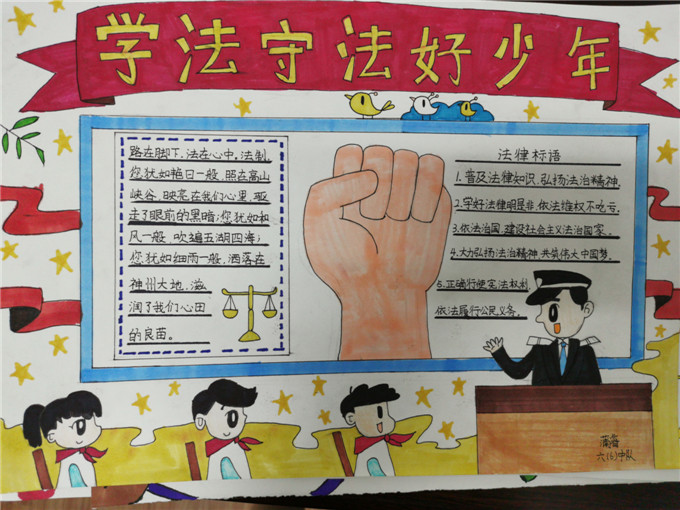 学法守法好少年
路在脚下,法在心中。法制,
您犹如艳日一般,照在高山
峡谷,映亮在我们心里,驱
走了眼前的黑暗;您犹如和
风一般,吹遍五湖四海;
您犹如细雨一般,洒落在
神州大地,滋
润了我们心田
的良苗。
法律标语
1.普及法律知识,弘扬法治精神.
2.学好法律明是非,依法维权不吃亏.
3.依法治国,建设社会主义法治国家。
4.大力弘扬法治精神,共筑伟大中国梦。
5.正确行使宪法权利,
依法履行公民义务。
六(6)中队